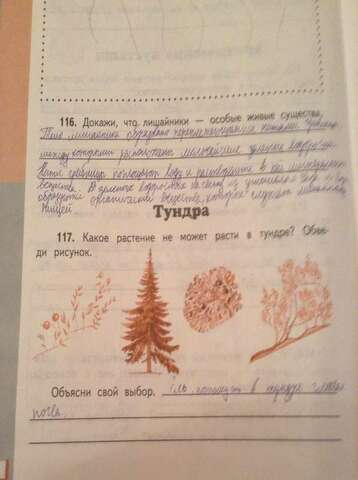 116. Докажи, что лишайники — особые живые существа.
Тело лишайника образовано переплетающимися нитями грибницы,
между которыми расположены мельчайшие зелёные водоросли.
Нити грибницы поглощают воду и растворённые в ней минеральные
вещества. В клетках водорослей из углекислого газа и воды
образуются органические вещества, которые служат лишайнику
пищей.
Тундра
117. Какое растение не может расти в тундре? Обве-
ди рисунок.
Объясни свой выбор. Ель, в тундре